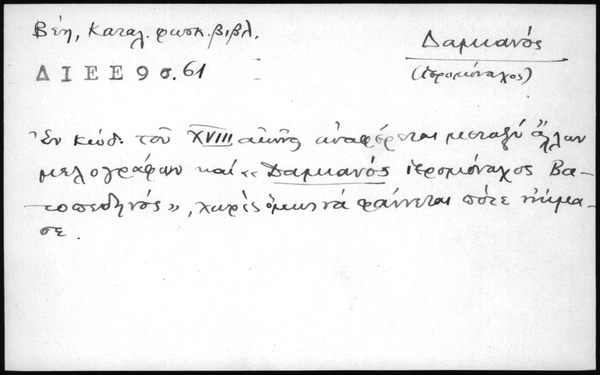 Βέη, Καταλ. φωσκ. βιβλ.
Δαμιανός
ΔΙΕΕ 9 σ. 61
(ἱερομόναχος)
Ἐν κώδ. τοῦ XVIII αἰῶνος ἀναφέρεται μεταξύ ἄλλων
μελογράφων καί «Δαμιανός ἱερομόναχος Βα-
τοπεδηνός», χωρίς ὅμως νά φαίνεται πότε ἤκμα-
σε.